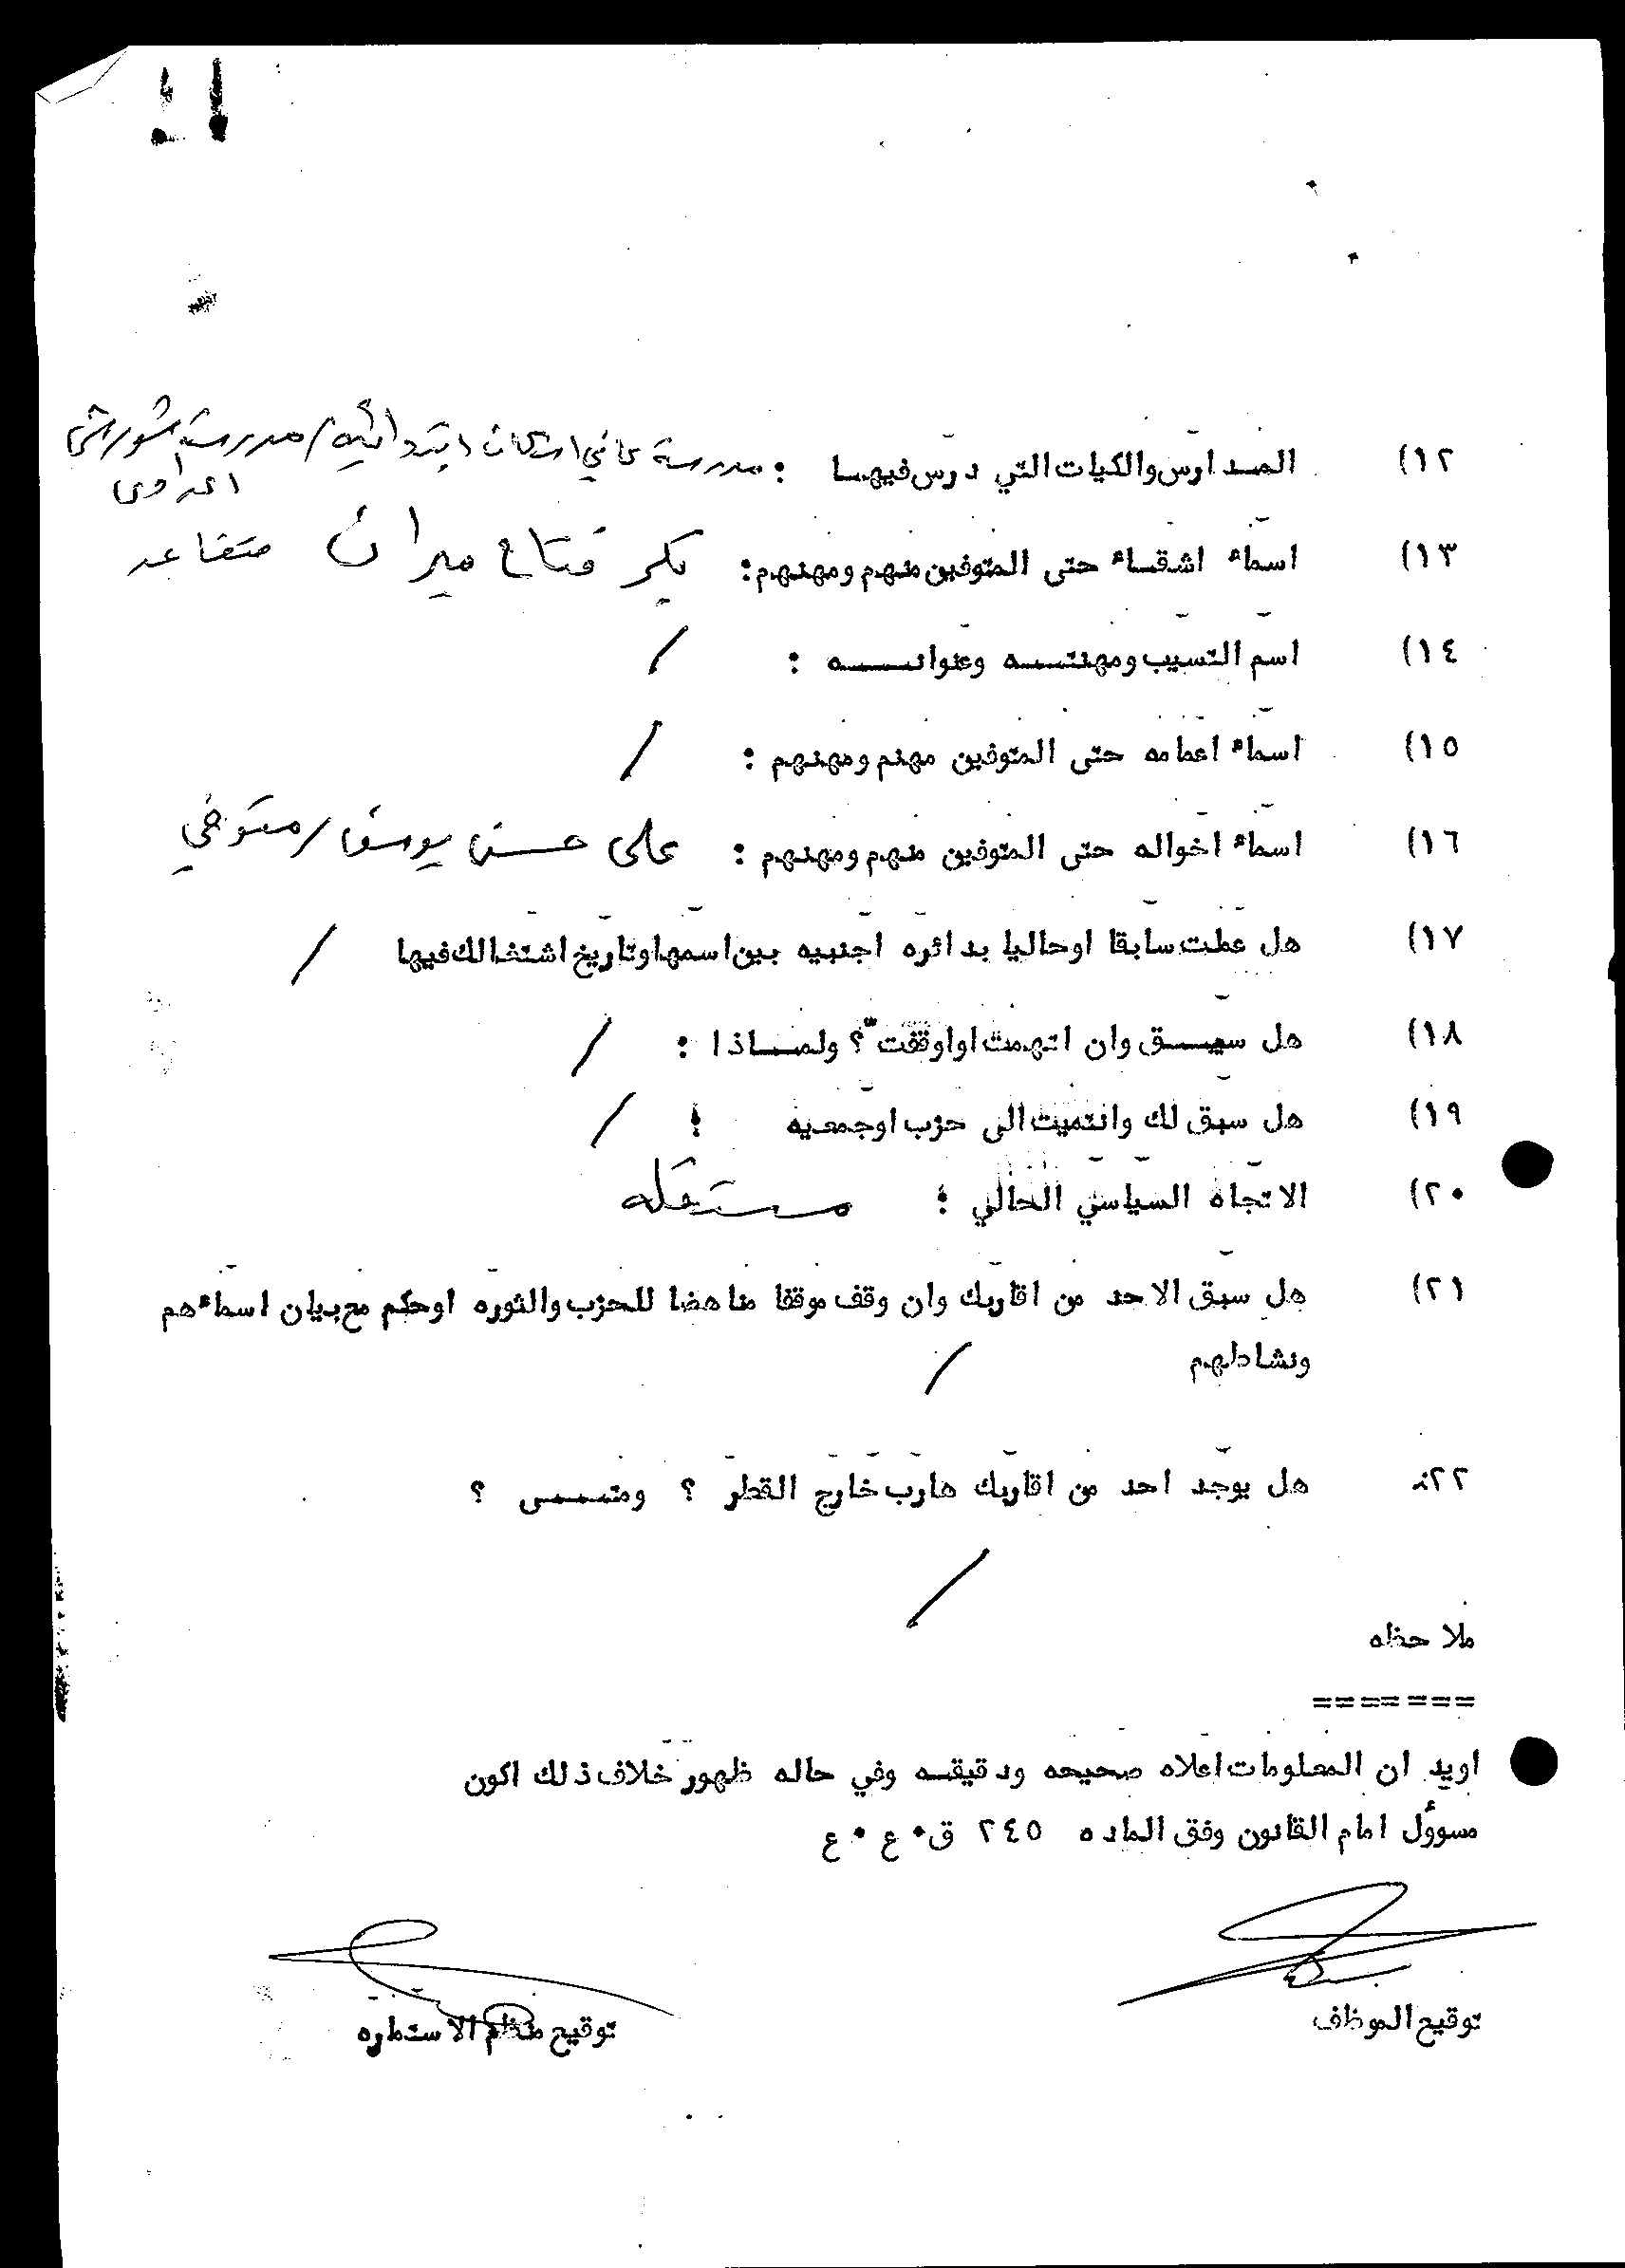 ١٢) المدارس والكيات التي درس فيهـا : مدرسة كاني اسكان ابتدائيه / مدرسة شورش
اعدادي
١٣) اسماء اشقـاء حتى المتوفين منهم ومهنهم: بكر فتاح ميران متقاعد
١٤) اسم النسيب ومهنتـــه وعنوانـــه : /
١٥) اسماء اعمامه حتى المتوفين مهنم ومهنهم : /
١٦) اسماء اخواله حتى المتوفين منهم ومهنهم : علي حسن يوسف / متوفي
١٧) هل عملت سابقا اوحاليا بدائره اجنبيه بين اسمها وتاريخ اشتغالك فيها /
١٨) هل سبـــق وان اتهمت اواوقفت ؟ ولمـــاذا : /
١٩) هل سبق لك وانتميت الى حزب اوجمعيه : /
٢٠) الاتجاه السياسي الحالي : مستقله
٢١) هل سبق الاحد من اقاربك وان وقف موقفا مناهضا للحزب والثوره اوحكم مع بيان اسماءهم
ونشاطهم /
٢٢) هل يوجد احد من اقاربك هارب خارج القطر ؟ ومتـــى ؟
/
ملاحظه
=======
اويد ان المعلومات اعلاه صحيحه ودقيقـه وفي حاله ظهور خلاف ذلك اكون
مسوؤل امام القانون وفق الماده ٢٤٥ ق٠ ع ٠ ع
توقيع الموظف توقيع منظم الاستماره